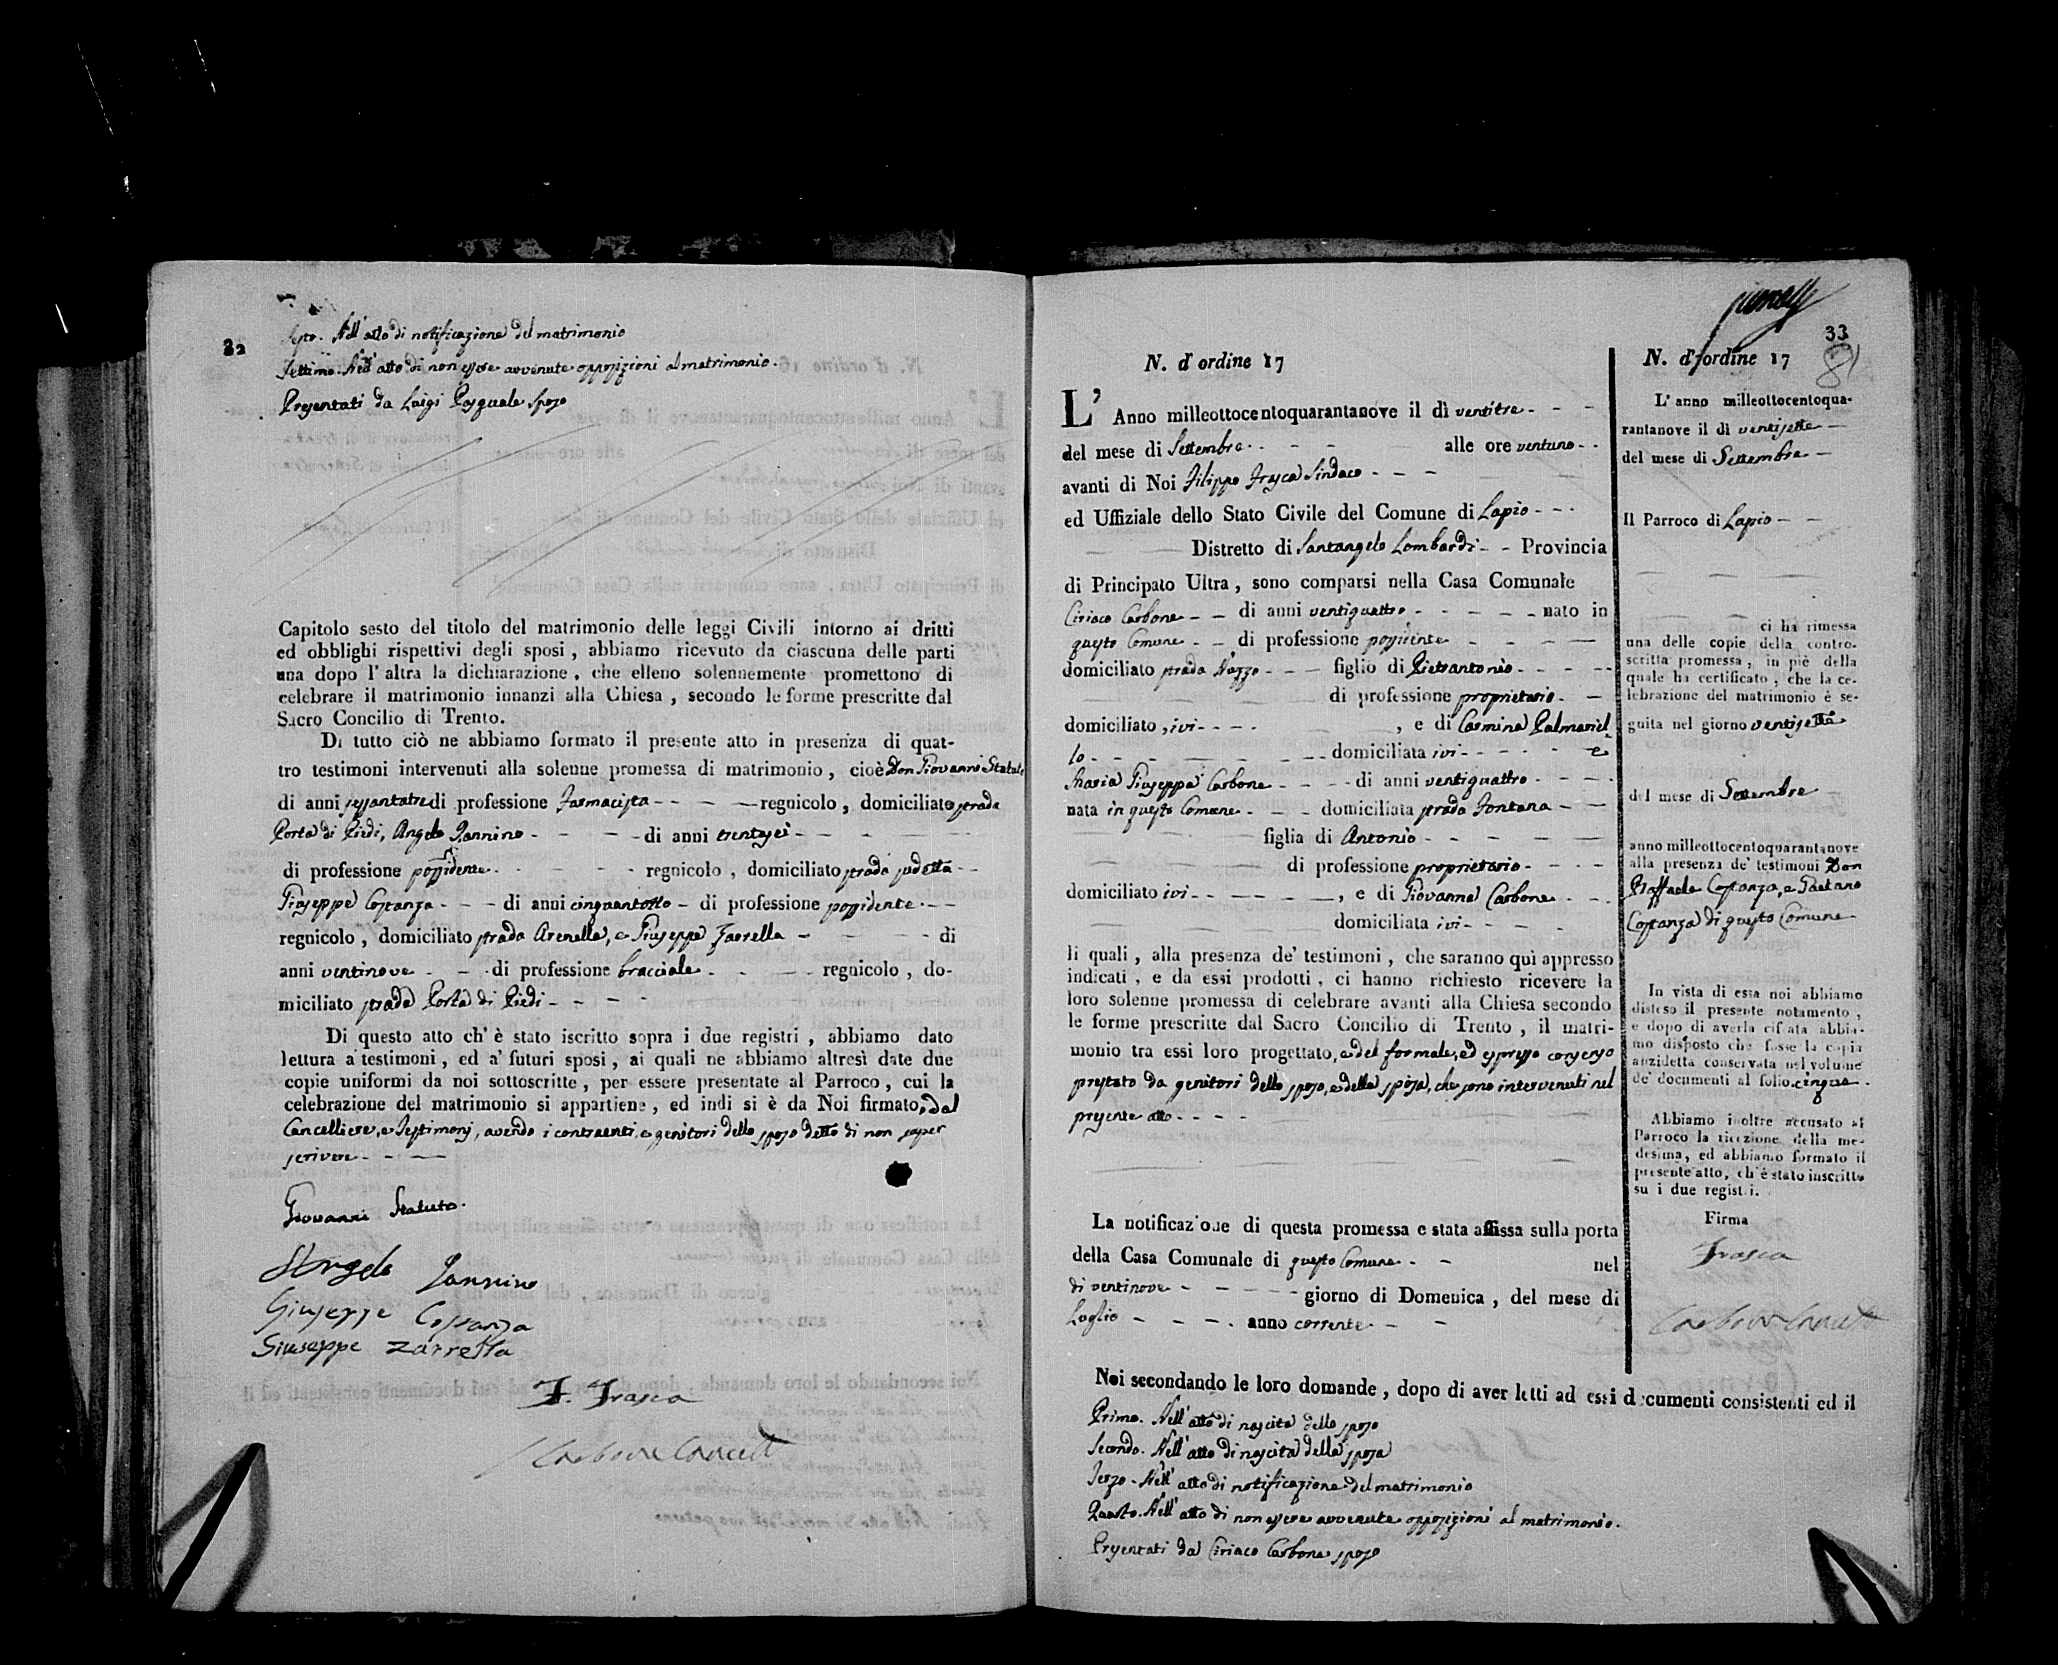 32
Sesto. Nell'atto di notificazione del matrimonio
Settimo. Nell'atto di non essere avvenute opposizioni al matrimonio.
Presentati da Luigi Pasquale sposo
Capitolo sesto del titolo del matrimonio delle leggi Civili intorno ai dritti
ed obblighi rispettivi degli sposi, abbiamo ricevuto da ciascuna delle parti
una dopo l'altra la dichiarazione, che elleno solennemente promettono di
celebrare il matrimonio innanzi alla Chiesa, secondo le forme prescritte dal
Sacro Concilio di Trento.
Di tutto ciò ne abbiamo formato il presente atto in presenza di quat-
tro testimoni intervenuti alla solenne promessa di matrimonio, cioè Don Giovanni Statuto
di anni sessantatre di professione Farmacista - - - - regnicolo, domiciliato strada
Porta di Piedi, Angelo Iannino - - - - di anni trentasei - -
di professione possidente - - - - regnicolo, domiciliato strada - -
Giuseppe Costanza - - - di anni cinquantotto - di professione possidente - - -
regnicolo, domiciliato strada Arenella, e Giuseppe Zarrella - - - di
anni ventinove - - - di professione bracciale - - - regnicolo, do-
miciliato strada Porta di Piedi - - - -
Di questo atto ch'è stato iscritto sopra i due registri, abbiamo dato
lettura a' testimoni, ed a' futuri sposi, ai quali ne abbiamo altresì date due
copie uniformi da noi sottoscritte, per essere presentate al Parroco, cui la
celebrazione del matrimonio si appartiene, ed indi si è da Noi firmato, dal
Cancelliere, e Testimonj, avendo i contraenti, e genitori dello sposo detto di non saper
scrivere - - -
Giovanni Statuto.
Angelo Iannino
Giuseppe Costanza
Giuseppe Zarrella
F. Frasca
Carbone Cancell
33
81
N. d'ordine 17
L'Anno milleottocentoquarantanove il dì ventitre - - -
del mese di Settembre - - - alle ore ventuno - -
avanti di Noi Filippo Frasca Sindaco - - -
ed Uffiziale dello Stato Civile del Comune di Lapio - - -
Distretto di Santangelo Lombardi - - Provincia
di Principato Ultra, sono comparsi nella Casa Comunale
Ciriaco Carbone - - di anni ventiquattro - - - - - nato in
questo Comune - - di professione possidente - - - -
domiciliato strada - - - figlio di Pietrantonio - - - -
di professione proprietario - -
domiciliato, ivi - - - - , e di Carmina Palmariel
lo - - - - - - - domiciliata ivi - - - - e
Maria Giuseppa Carbone - - - - di anni ventiquattro - - - -
nata in questo Comune - - - domiciliata strada Fontana - -
figlia di Antonio - - - - -
di professione proprietario - - - -
domiciliato ivi - - - - - - , e di Giovanna Carbone - - -
domiciliata ivi - - - -
li quali, alla presenza de' testimoni, che saranno quì appresso
indicati, e da essi prodotti, ci hanno richiesto ricevere la
loro solenne promessa di celebrare avanti alla Chiesa secondo
le forme prescritte dal Sacro Concilio di Trento, il matri-
monio tra essi loro progettato, e del formale, ed espresso consenso
prestato da genitori dello sposo, e della sposa, che sono intervenuti nel
presente atto - - - -
La notificazione di questa promessa e stata affissa sulla porta
della Casa Comunale di questo Comune - - nel
dì ventinove - - - - - giorno di Domenica, del mese di
Luglio - - - - anno corrente - - -
Noi secondando le loro domande, dopo di aver letti ad essi documenti consistenti ed il
Primo. Nell'atto di nascita dello sposo
Secondo. Nell'atto di nascita della sposa
Terzo - Nell'atto di notificazione del matrimonio
Quarto. Nell'atto di non essere avvenute opposizioni al matrimonio.
Presentati da Ciriaco Carbone sposo
N. d'ordine 17
L'anno milleottocentoqua-
rantanove il dì ventisette -
del mese di Settembre -
Il Parroco di Lapio - -
ci ha rimessa
una delle copie della contro-
scritta promessa, in piè della
quale ha certificato, che la ce-
lebrazione del matrimonio è se-
guita nel giorno ventisette
del mese di Settembre
anno milleottocentoquarantanove
alla presenza de' testimoni Don
Raffaele Costanza, e Gaetano
Costanza di questo Comune
In vista di essa noi abbiamo
disteso il presente notamento,
e dopo di averla cifrata abbia-
mo disposto che fosse la copia
anzidetta conservata nel volume
de' documenti al folio cinque.
Abbiamo inoltre accusato al
Parroco la ricezione della me-
desima, ed abbiamo formato il
presente atto, ch'è stato inscritto
su i due registri.
Firma
Frasca
Carbone Cancell